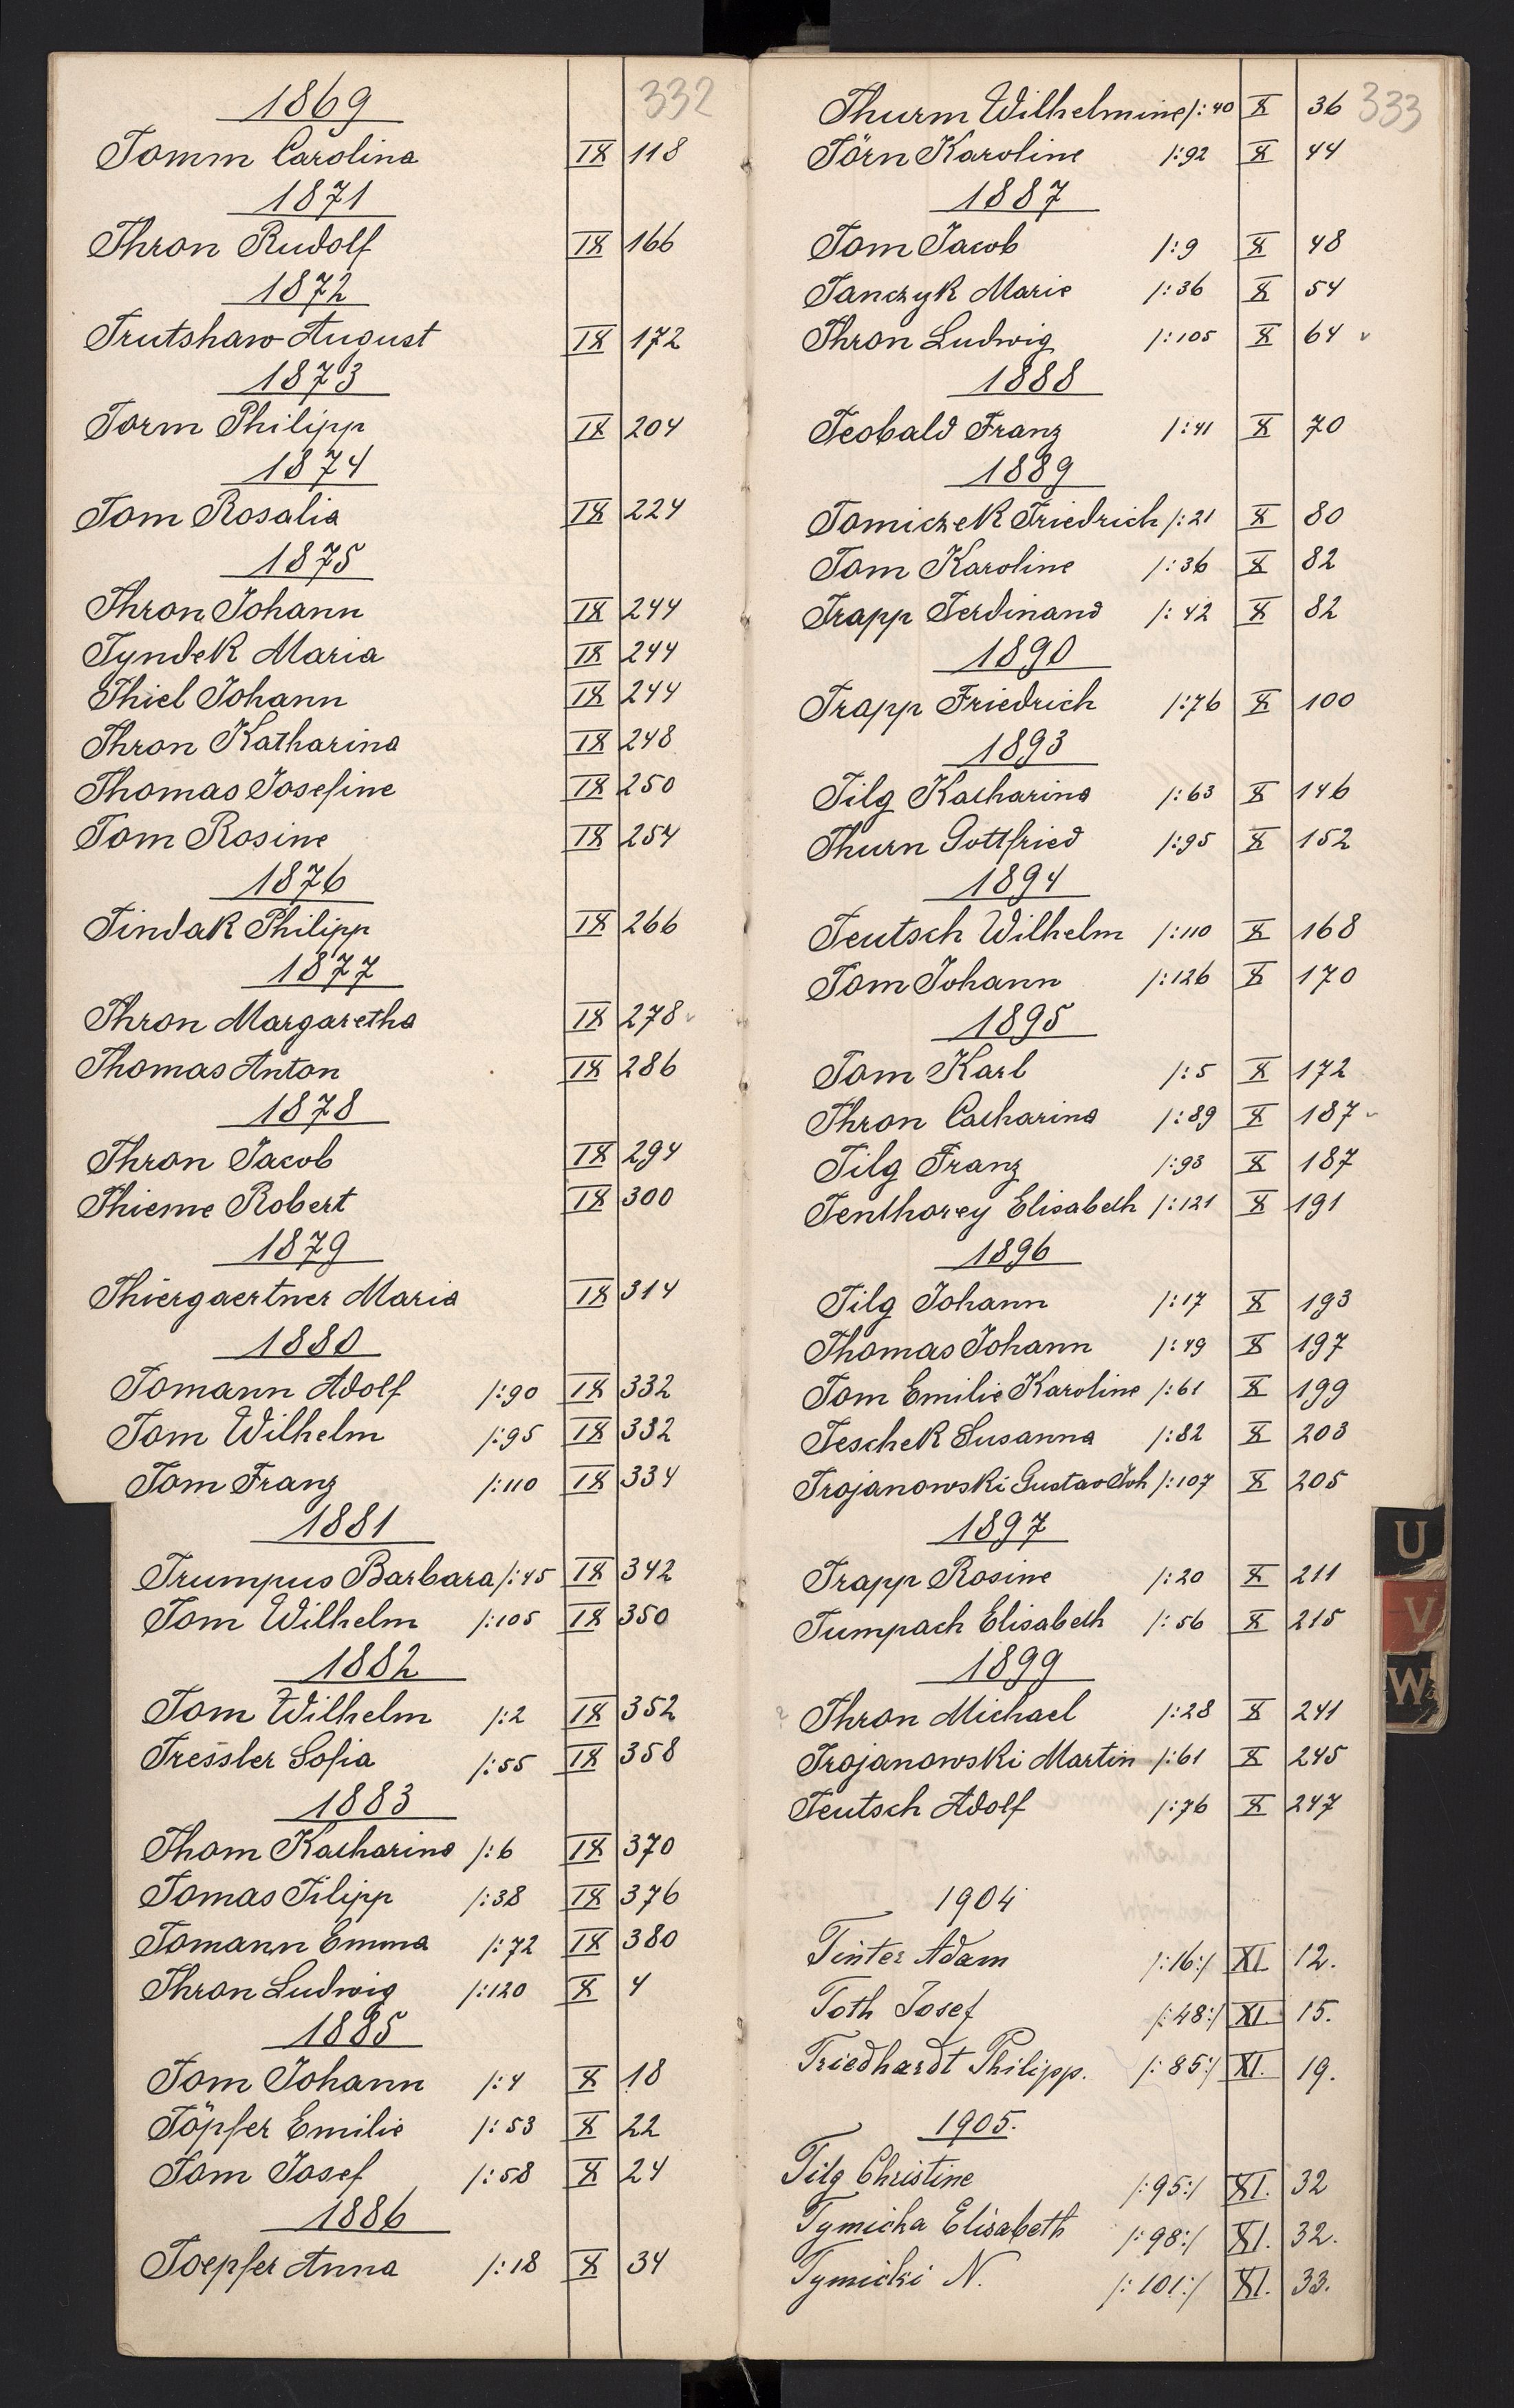 332
1869
Tomm Carolina IX 118
1871
Thron Rudolf IX 166
1872
Trutshaw August IX 172
1873
Torm Philipp IX 204
1874
Tom Rosalia IX 224
1875
Thron Johann IX 244
Tyndek Maria IX 244
Thiel Johann IX 244
Thron Katharina IX 248
Thomas Josefine IX 250
Tom Rosine IX 254
1876
Tindak Philipp IX 266
1877
Thron Margaretha IX 278
Thomas Anton IX 286
1878
Thron Jacob IX 294
Thieme Robert IX 300
1879
Thiergaertner Maria IX 314
1880
Tomann Adolf /:90 IX 332
Tom Wilhelm /:95 IX 332
Tom Franz /:110 IX 334
1881
Trumpus Barbara /:45 IX 342
Tom Wilhelm /:105 IX 350
1882
Tom Wilhelm /:2 IX 352
Tressler Sofia /:55 IX 358
1883
Thom Katharina /:6 IX 370
Tomas Filipp /:38 IX 376
Tomann Emma /:72 IX 380
Thron Ludwig /:120 X 4
1885
Tom Johann /:4 X 18
Töpfer Emilie /:53 X 22
Tom Josef /:58 X 24
1886
Toepfer Anna /:18 X 34
333
Thurm Wilhelmine /:40 X 36
Törn Karoline /:92 X 44
1887
Tom Jacob /:9 X 48
Tanczyk Marie /:36 X 54
Thron Ludwig /:105 X 64
1888
Teobald Franz /:41 X 70
1889
Tomiczek Friedrich /:21 X 80
Tom Karoline /:36 X 82
Trapp Ferdinand /:42 X 82
1890
Trapp Friedrich /:76 X 100
1893
Tilg Katharina /:63 X 146
Thurn Gottfried /:95 X 152
1894
Teutsch Wilhelm /:110 X 168
Tom Johann /:126 X 170
1895
Tom Karl /:5 X 172
Thron Catharina /:89 X 187
Tilg Franz /:93 X 187
Tenthorey Elisabeth /:121 X 191
1896
Tilg Johann /:17 X 193
Thomas Johann /:49 X 197
Tom Emilie Karoline /:61 X 199
Teschek Susanna /:82 X 203
Trojanowski Gustav Joh /:107 X 205
1897
Trapp Rosine /:20 X 211
Tumpach Elisabeth /:56 X 215
1899
Thron Michael /:28 X 241
Trojanowski Martin /:61 X 245
Teutsch Adolf /:76 X 247
1904
Tinter Adam /:16:/ XI. 12.
Toth Josef /:48:/ XI. 15.
Triedhardt Philipp. /:85:/ XI. 19.
1905.
Tilg Christine /:95:/ XI. 32
Tymicha Elisabeth /:98:/ XI. 32.
Tymicki N. /:101:/ XI. 33.
U
V
W